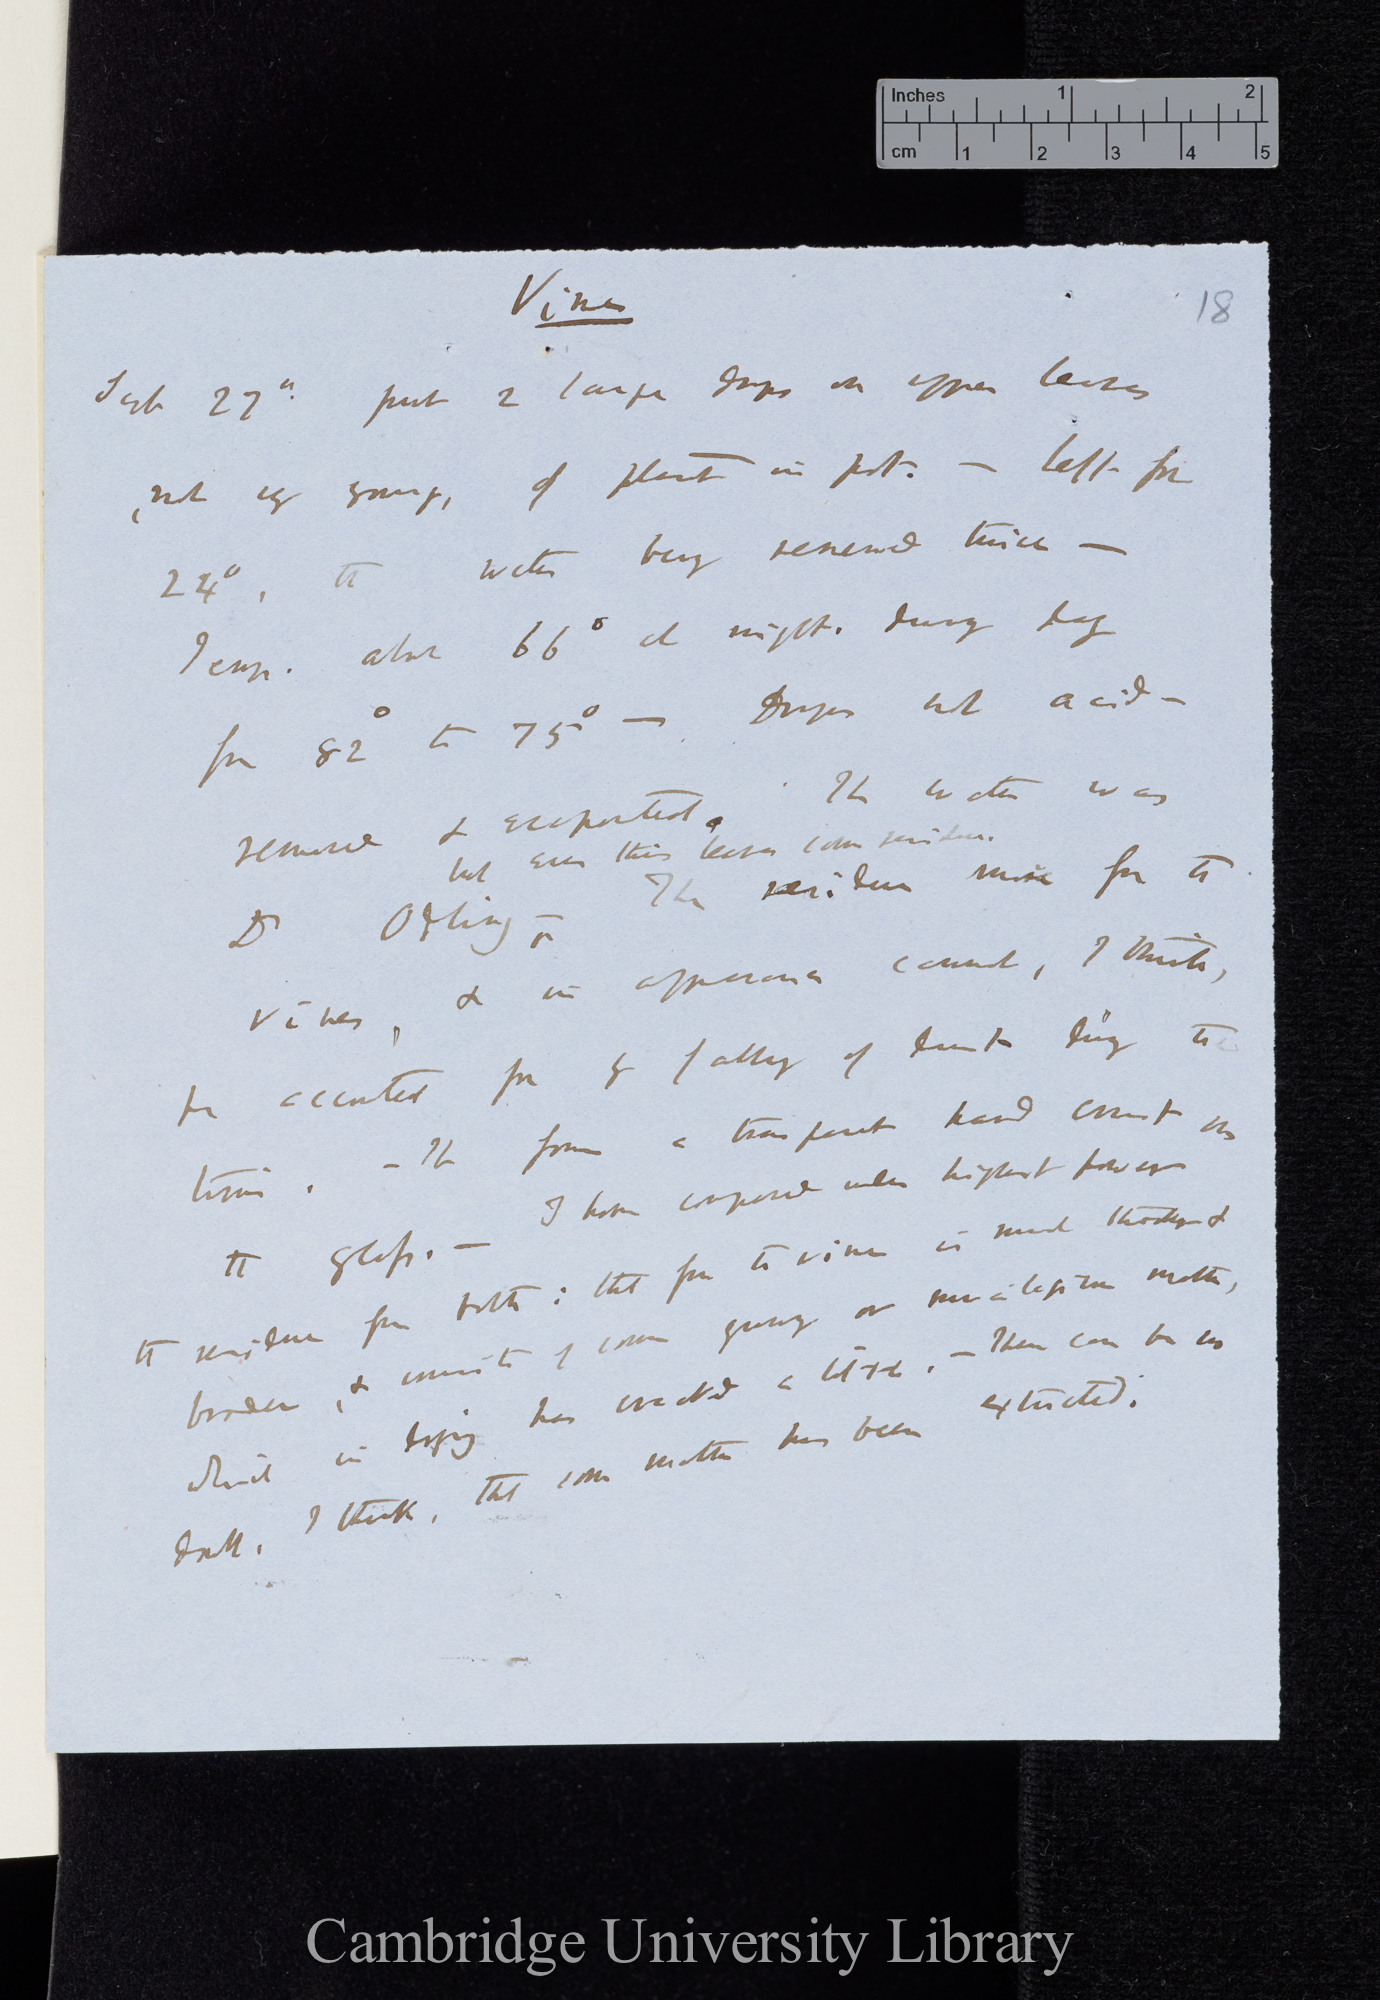 Inches 1 2
cm 1 2 3 4 5
Vines
18
27th. put 2 large drops on upper leaves
(not young, of plant in pot. — left for
24°, the water being renewed twice —
Temp. about 66° at night. during day
from 82° to 75° — Drops not acid —
removed & evaporated. The water was
but even this leaves some residue.
Dr Odling — The residue more from the
vines, & in appearance cannot, I think,
be accounted for by falling of dust during the
time. — It forms a transparent hard crust on
the glass. — I have compared under highest power
the residue from both: that from the vine is much thicker &
broader, & consists of some gummy or mucilaginous matter,
which in drying has cracked a little. — There can be no
doubt, I think, that some matter has been extracted.
Cambridge University Library